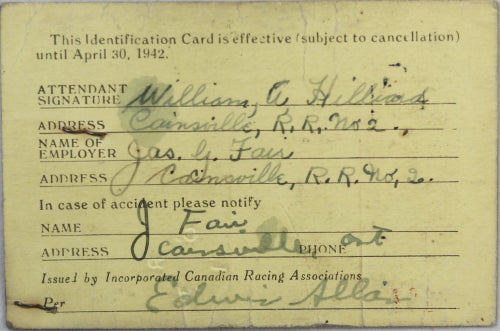 This Identification Card is effective (subject to cancellation)
until April 30, 1942.
ATTENDANT
SIGNATURE William, A Hilliard
ADDRESS Cainsville, R. R. No 2.,
NAME OF
EMPLOYER Jas. G. Fair
ADDRESS Cainsville, R. R. No, 2.
In case of accident please notify
NAME J Fair
ADDRESS Cainsville PHONE ont
Issued by Incorporated Canadian Racing Associations.
Per Edwin Allan